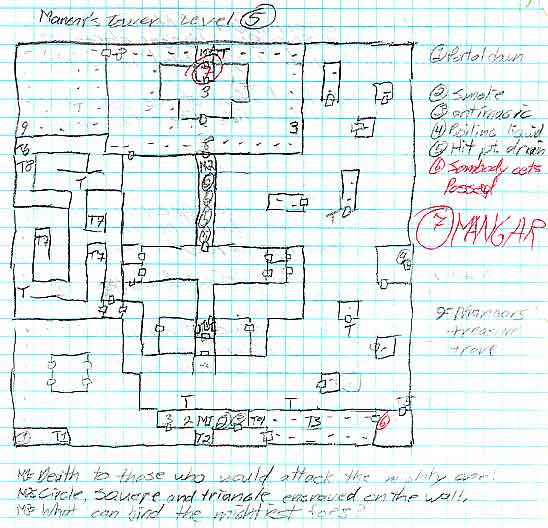 Mangar's Tower Level 5
① Portal down
② Smoke
③ antimagic
④ Boiling liquid
⑤ Hit pt. drain
⑥ Sombody gets
Possed
⑦ MANGAR
8
MT
7
3
9
3
T8
8
T8
M2
T
T7
T
T7
T7
T
T
T
T
T
3 2 M1 T9 T3 6
T2
1 T1
9- Mangars
treasure
trove
M1= Death to those who would attack the mighty one!
M2= Circle, Square and triangle engraved on the wall.
M3= What can bind the mightiest foes?